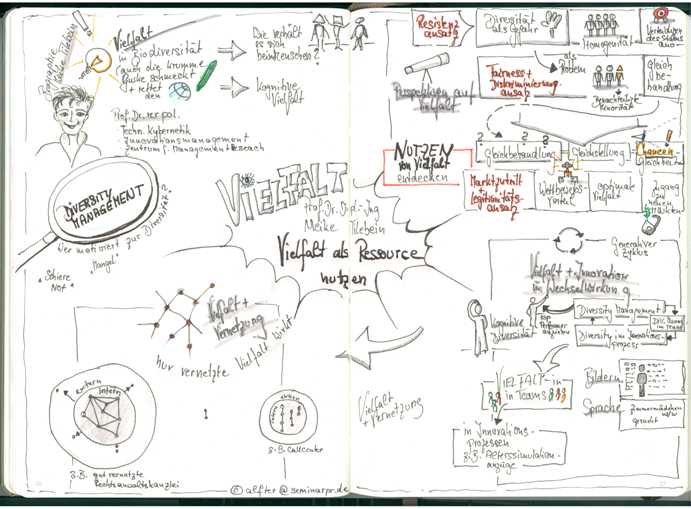 Vielfalt
in Biodiversität
auch die krumme
Gurke schmeckt
+ rettet
den
Die verhält
es sich
bei Menschen?
Kognitive
Vielfalt
Prof. Dr. rer. pol.
Techn. Kybernetik
Innovationsmanagement
Zentrum f. Management Research
DIVERSITY
MANAGEMENT
Wer motiviert zur Diversität?
"Mangel"
"Schiere
Not"
VIELFALT
Prof. Dr. Dipl.-Ing
Meike Tilebein
Vielfalt als Ressource
nutzen
Vielfalt +
Vernetzung
nur vernetzte Vielfalt wirkt
extern
intern
z.B. gut vernetzte
Rechtsanwaltskanzlei
extern
z.B. Callcenter
© alfter@seminarpr.de
Resistenz
ansatz
Diversität
als Gefahr
Homogenität
Verteidigung
des Status
quo
Perspektiven auf
Vielfalt
Fairness +
Diskriminierungs-
ansatz
als
Problem
Benachteiligte
Minorität
Gleich
be-
handlung
NUTZEN
von Vielfalt
entdecken
Gleichbehandlung
Gleichstellung
Chancen-
Gleichheit
Marktzutritt
Legitimitäts-
ansatz
Wettbewerbs-
vorteil
optimale
Vielfalt
Zugang
zu
neuen
Märkten
Generativer
Zyklus
Vielfalt + Innovation
in Wechselwirkung
Kognitive
Diversität
top
Performer
Diversity Management
Diversity im Innovations-
prozess
VIELFALT in
in Teams
Bildern
Sprache
Zimmermädchen
gesucht
Vielfalt
+ Vernetzung
in Innovations-
prozessen
z.B. Alterssimulation-
anzüge